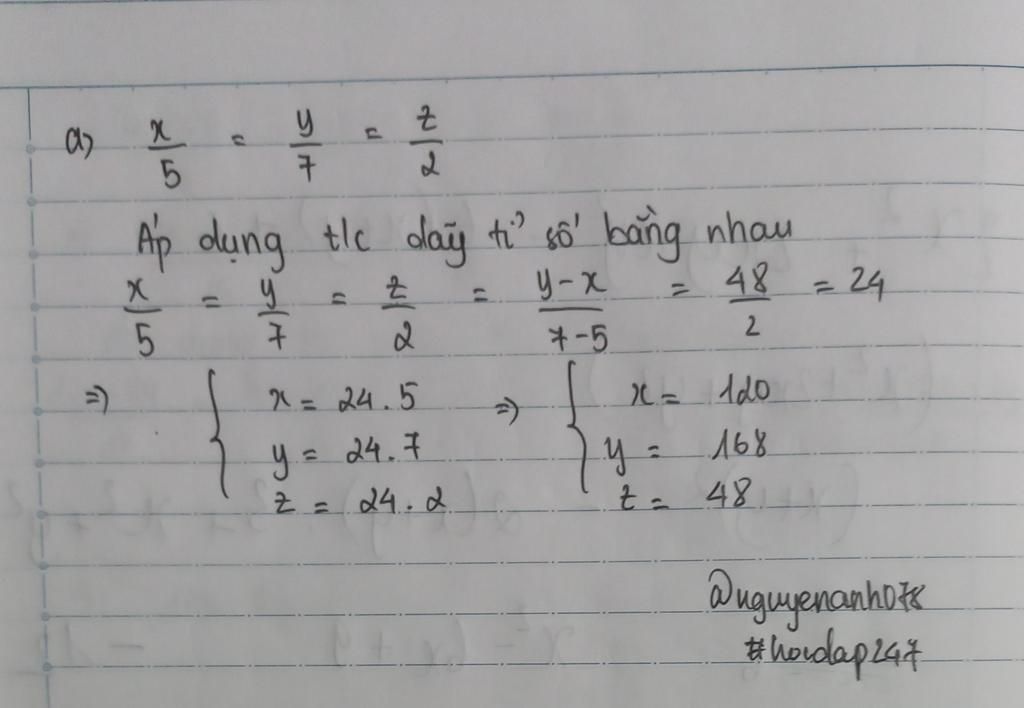 a) x/5 = y/7 = z/2
Áp dụng t/c dãy tỉ số bằng nhau
x/5 = y/7 = z/2 = y-x/7-5 = 48/2 = 24
=> { x = 24.5 => { x = 120
y = 24.7 y = 168
z = 24.2 z = 48
@nguyenanh078
#hoidap247